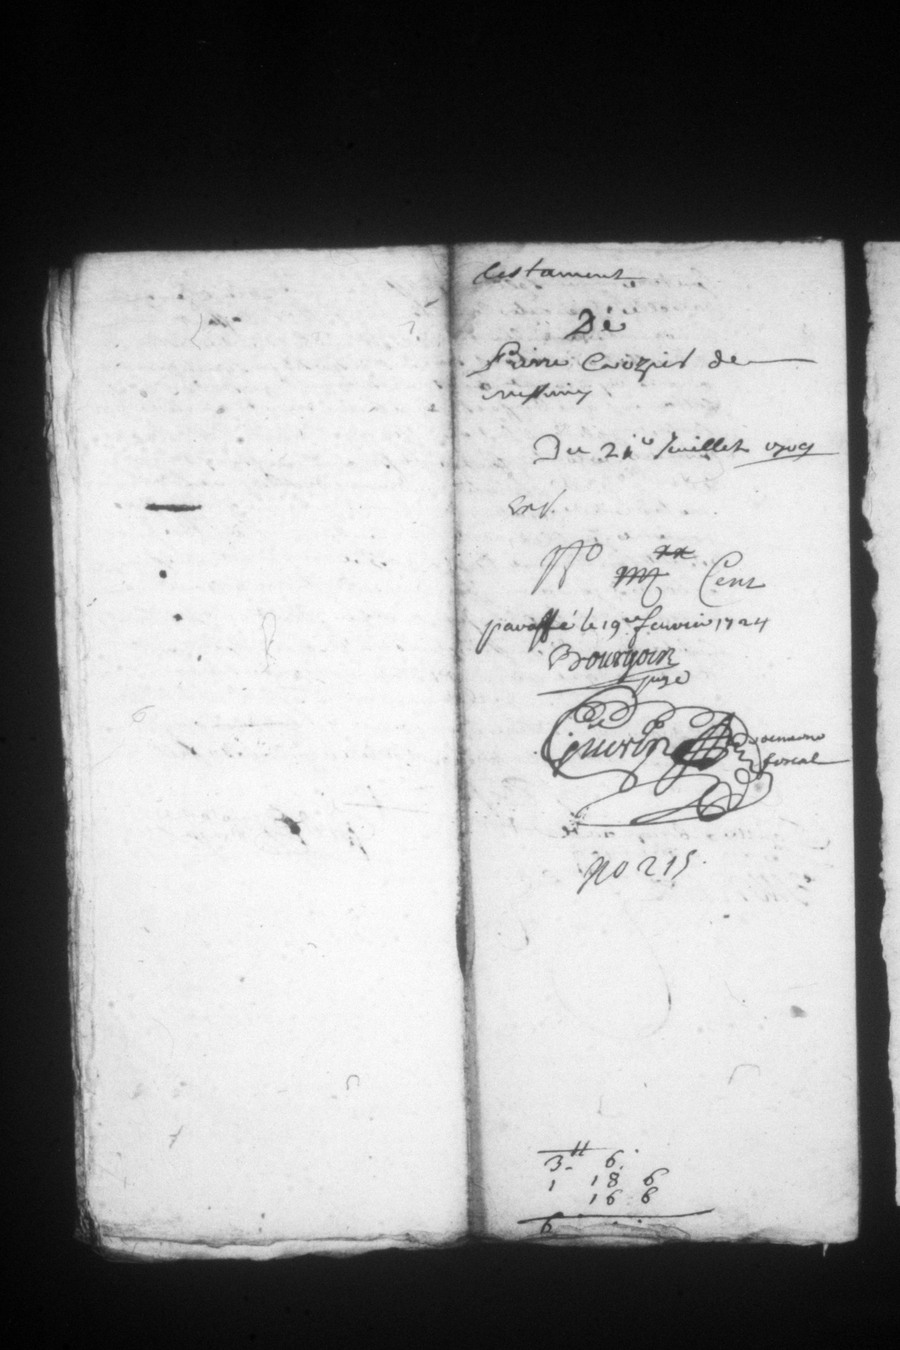 testament
De
Pierre Crozier de
Du 21e Juillet 1709
No Cent
paraffé le 19e feuvrier 1724
Bourgoin
juge
Guerin procureur
fiscal
No 215.
3 ⁠tt 6.
1 18 6
16 6
6 . .